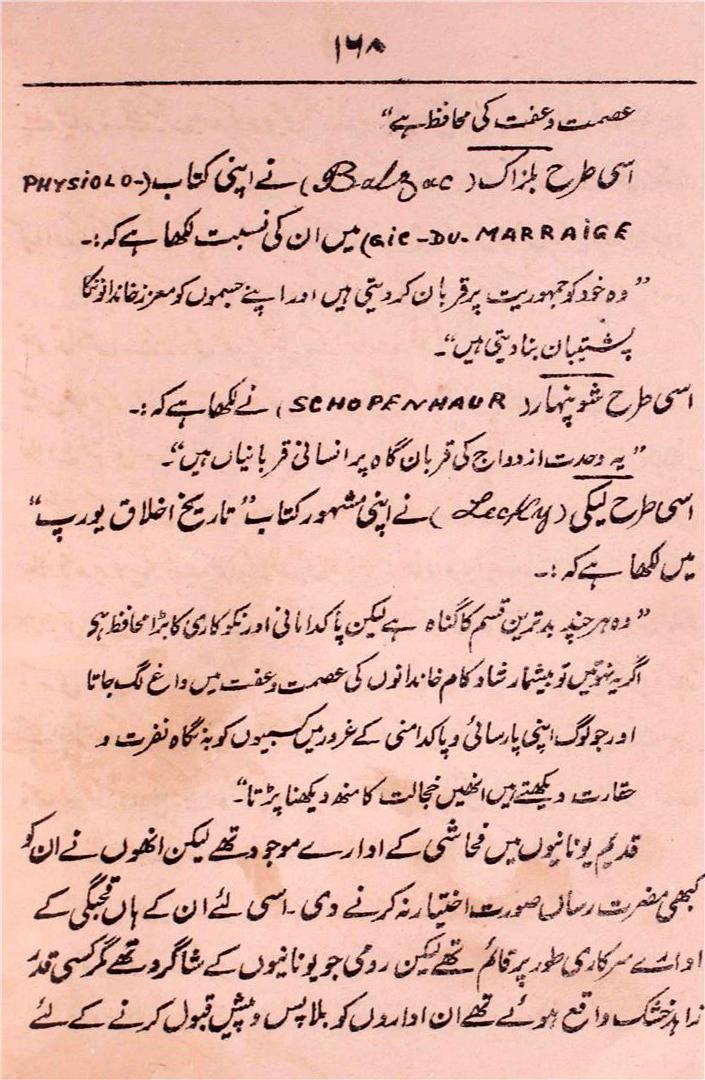 ۱۶۸
عصمت و عفت کی محافظ ہے“
اسی طرح بلزاک (Balzac) نے اپنی کتاب (PHYSIOLO-
GIE-DU-MARRAIGE) میں ان کی نسبت لکھا ہے کہ:۔
”وہ خود کو جمہوریت پر قربان کر دیتی ہیں اور اپنے جسموں کو معزز خاندانونکا
پشتیبان بنا دیتی ہیں“۔
اسی طرح شوپنہار (SCHOPENHAUR) نے لکھا ہے کہ:۔
”یہ وحدت ازدواج کی قربان گاہ پر انسانی قربانیاں ہیں“۔
اسی طرح لیکی (Lecky) نے اپنی مشہور کتاب ”تاریخ اخلاق یورپ“
میں لکھا ہے کہ:۔
”وہ ہر چند بدترین قسم کا گناہ ہے لیکن پاکدامانی اور نکوکاری کا بڑا محافظ ہی
اگر یہ نہوتیں تو بیشمار شاد کام خاندانوں کی عصمت و عفت میں داغ لگ جاتا
اور جو لوگ اپنی پارسائی و پاکدامنی کے غرور میں کسبیوں کو بہ نگاہ نفرت و
حقارت دیکھتے ہیں انھیں خجالت کا منھ دیکھنا پڑتا“۔
قدیم یونانیوں میں فحاشی کے ادارے موجود تھے لیکن انھوں نے ان کو
کبھی مضرت رساں صورت اختیار نہ کرنے دی۔ اسی لئے ان کے ہاں قحبگی کے
ادارے سرکاری طور پر قائم تھے لیکن رومی جو یونانیوں کے شاگرد تھے مگر کسی قدر
زاہد خشک واقع ہوئے تھے ان اداروں کو بلا پس و پیش قبول کرنے کے لئے